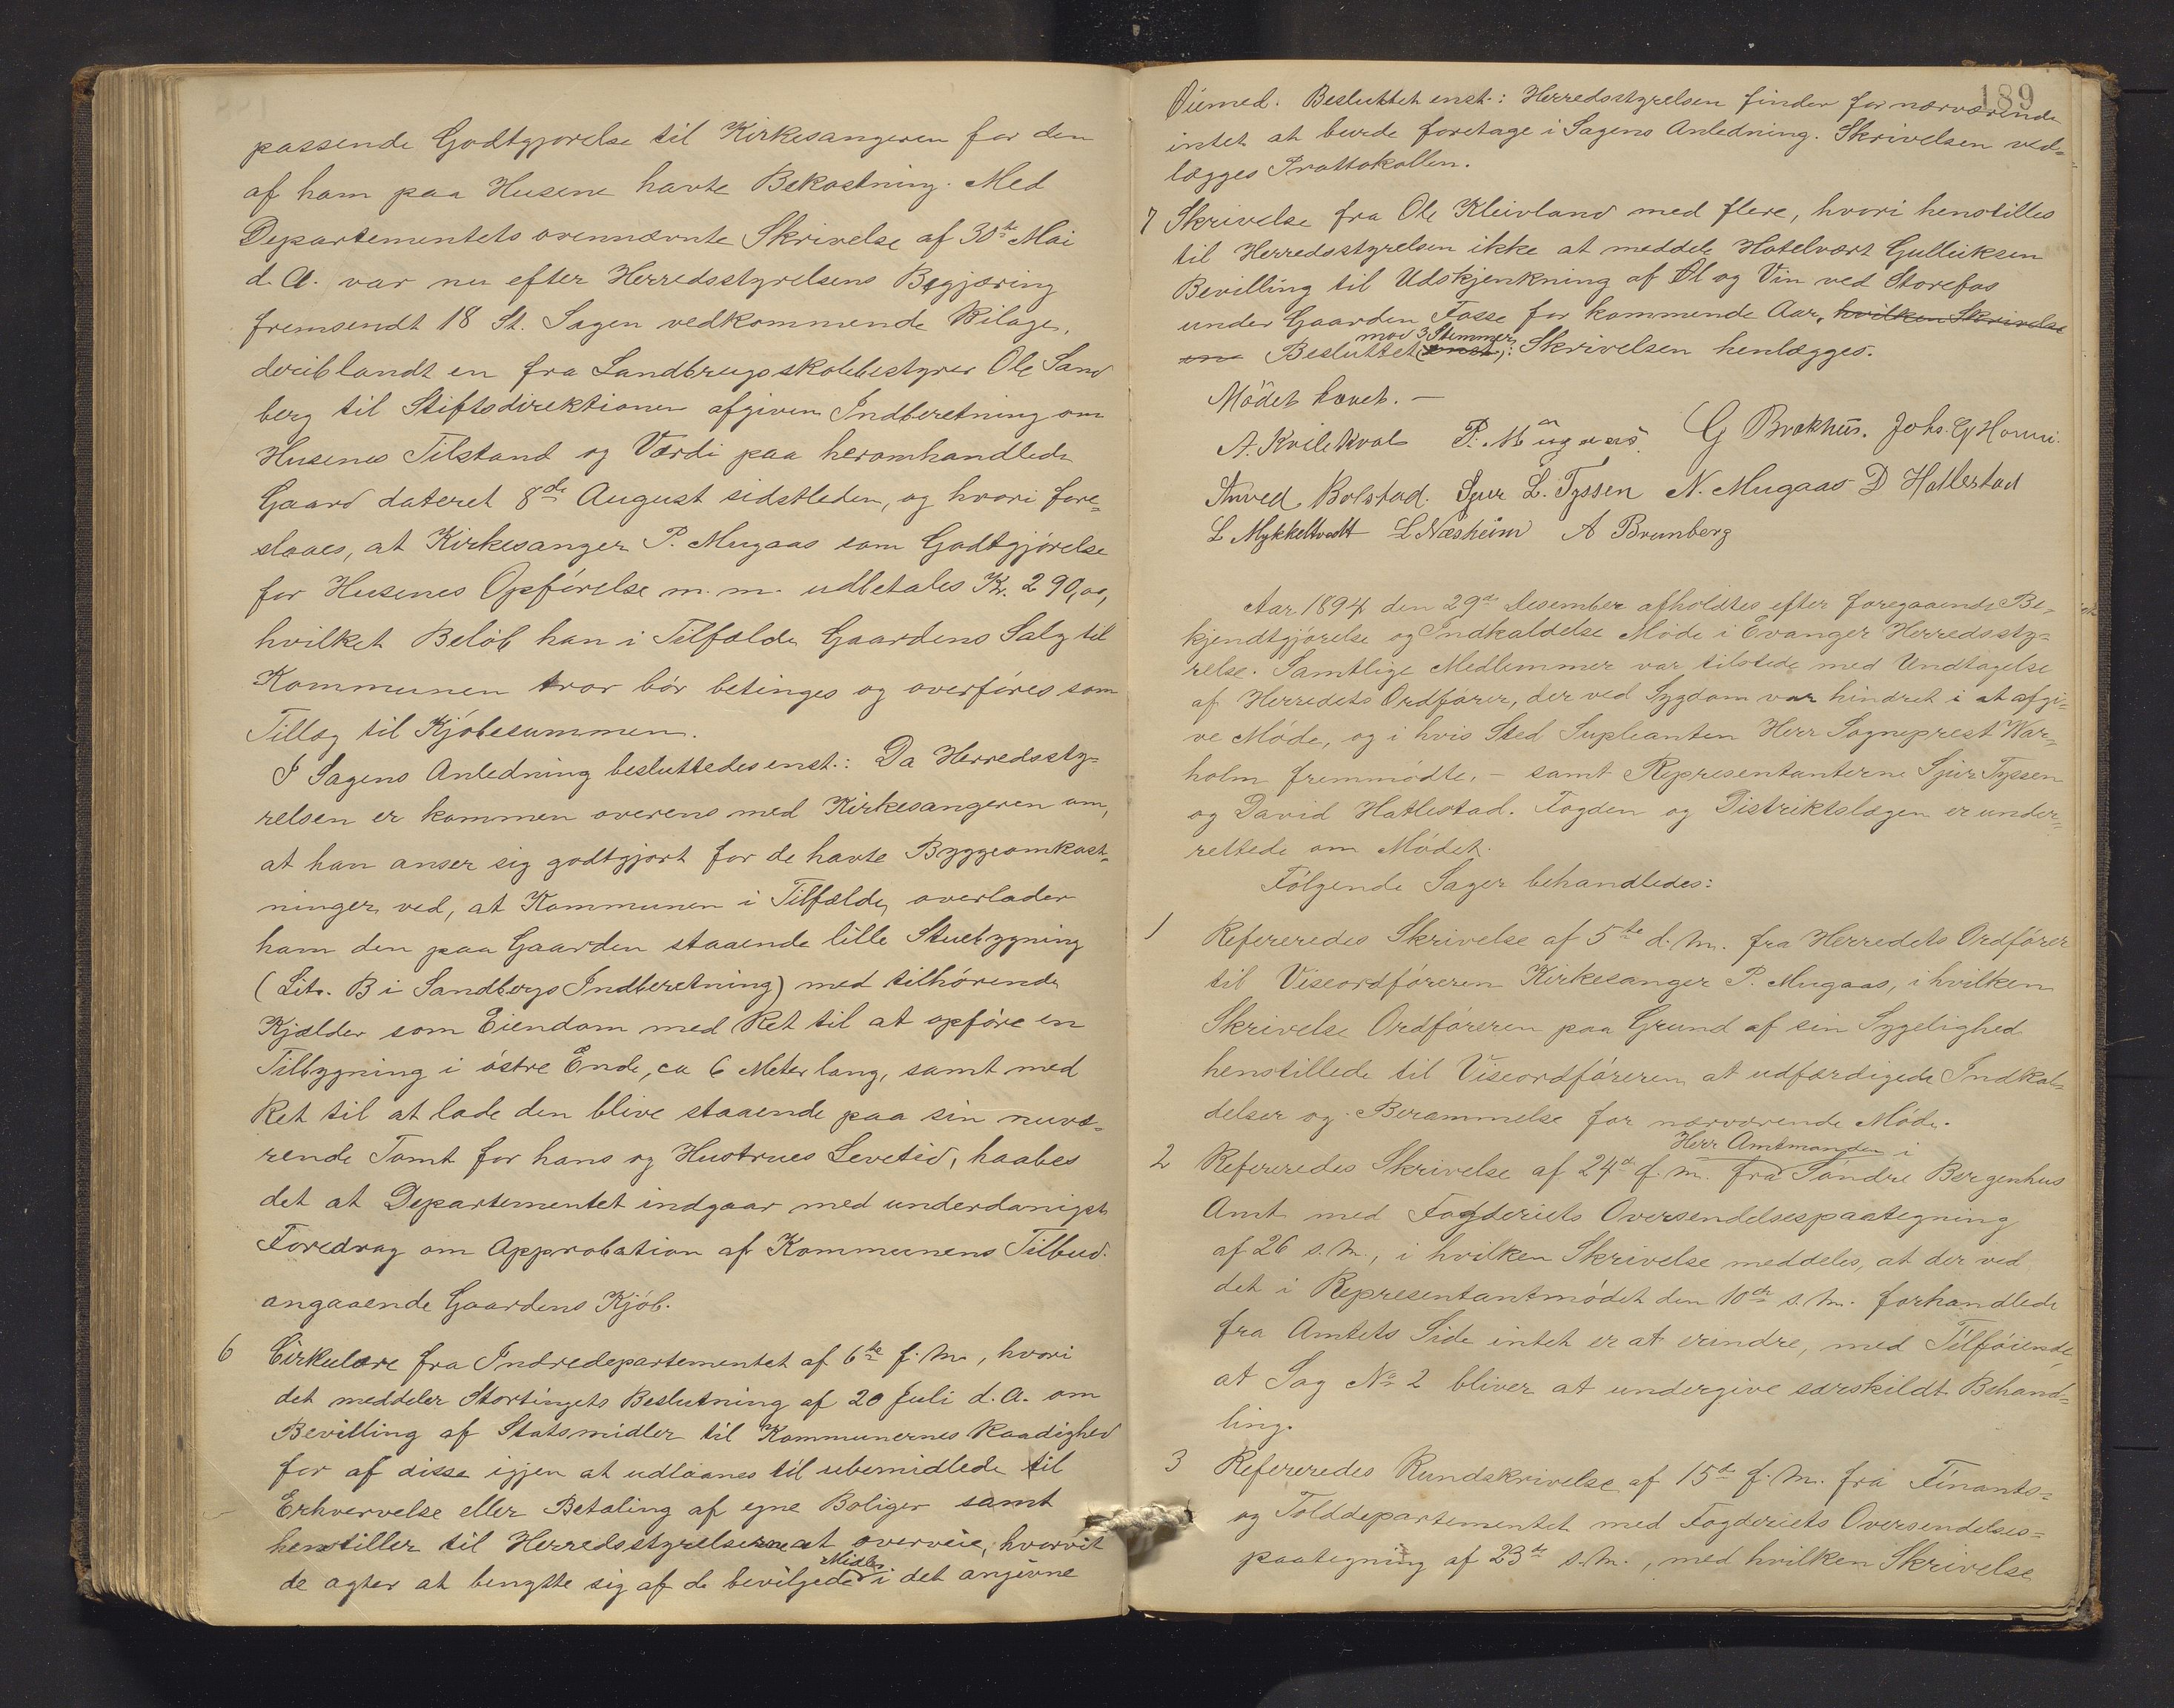 passende Godtgjorelse til Kirkesangeren for den
af ham paa Husene havte Bekostning. Med
Departementets ovennævnte Skrivelse af 30te Mai
d. A. var nu efter Herredsstyrelsens Begjæring
fremsendt 18 St. Sagen vedkommende Bilage,
deriblandt en fra Landbrugsskolebestyrer Ole Sand
berg til Stiftsdirektionen afgiven Indberetning om
Husenes Tilstand og Værdi paa heromhandlede
Gaard dateret 8de August sidstleden, og hvori fore=
slaaes, at Kirkesanger P. Mugaas som Godtgjörelse
for Husenes Opförelse m. m. udbetales Kr. 290,00,
hvilket Belöb han i Tilfælde Gaardens Salg til
Kommunen tror bör betinges og overföres som
Tillæg til Kjöbesummen.
I Sagens Anledning besluttedes enst.: Da Herredssty=
relsen er kommen overens med Kirkesangeren om,
at han anser sig godtgjort for de havte Byggeomkost=
ninger ved, at Kommunen i Tilfælde overlader
ham den paa Gaarden staaende lille Stuebygning
(Litr. B i Sandbergs Indberetning) med tilhörende
Kjælder som Eiendom med Ret til at opföre en
Tilbygning i östre Ende, ca 6 Meter lang, samt med
Ret til at lade den blive staaende paa sin nuvæ=
rende Tomt for hans og Hustrues Levetid, haabes
det at Departementet indgaar med underdanigst
Foredrag om Approbation af Kommunens Tilbud
angaaende Gaardens Kjöb.
6 Cirkulære fra Indredepartementet af 6te f. M., hvori
det meddeler Stortingets Beslutning af 20 Juli d. A. om
Bevilling af Statsmidler til Kommunernes Raadighed
for af disse igjen at udlaanes til ubemidlede til
Erhvervelse eller Betaling af egne Boliger samt
henstiller til Herredsstyrelserne at overveie, hvorvit
de agter at benytte sig af de bevilgede Midler i det angivne
189
Öiemed. Besluttet enst.: Herredsstyrelsen finder for nærværende
intet at burde foretage i Sagens Anledning. Skrivelsen ved=
lægges Prottokollen.
7 Skrivelse fra Ole Kleivland med flere, hvori henstilles
til Herredsstyrelsen ikke at meddele Hotelvært Gulliksen
Bevilling til Udskjenkning af Öl og Vin ved Storefos
under Gaarden Fosse for kommende Aar, hvilken Skrivelse
en Besluttet enst. mod 3 Stemmer: Skrivelsen henlægges.
Mödet hævet. —
A. Kvilekval P. Mugaas G Brakhus. Johs. G Horvei.
Anved Bolstad. Sjur L. Tyssen N. Mugaas D Hatlestad
L Mykkeltvedt L Næsheim A Brunborg
Aar 1894 den 29de Desember afholdtes efter foregaaende Be=
kjendtgjörelse og Indkaldelse Möde i Evanger Herredssty=
relse. Samtlige Medlemmer var tilstede med Undtagelse
af Herredets Ordförer, der ved Sygdom var hindret i at afgi=
ve Möde, og i hvis Sted Supleanten Herr Sogneprest War=
holm fremmödte, – samt Representanterne Sjur Tyssen
og David Hatlestad. Fogden og Distriktslægen er under=
rettede om Mödet.
Fölgende Sager behandledes:
1 Refereredes Skrivelse af 5te d. M. fra Herredets Ordförer
til Viseordföreren Kirkesanger P. Mugaas, i hvilken
Skrivelse Ordföreren paa Grund af sin Sygelighed
henstillede til Viseordföreren at udfærdigede Indkal=
delser og Berammelse for nærværende Möde.
2 Refereredes Skrivelse af 24de f. M. fra Herr Amtmanden i Söndre Bergenhus
Amt med Fogderiets Oversendelsespaategning
af 26 s. M., i hvilken Skrivelse meddeles, at der ved
det i Representantmödet den 10de s. M. forhandlede
fra Amtets Side intet er at erindre, med Tilföiende,
at Sag No 2 bliver at undergive særskildt Behand=
ling.
3 Refereredes Rundskrivelse af 15de f. M. fra Finants=
og Tolddepartementet med Fogderiets Oversendelses=
paategning af 23de s. M., med hvilken Skrivelse